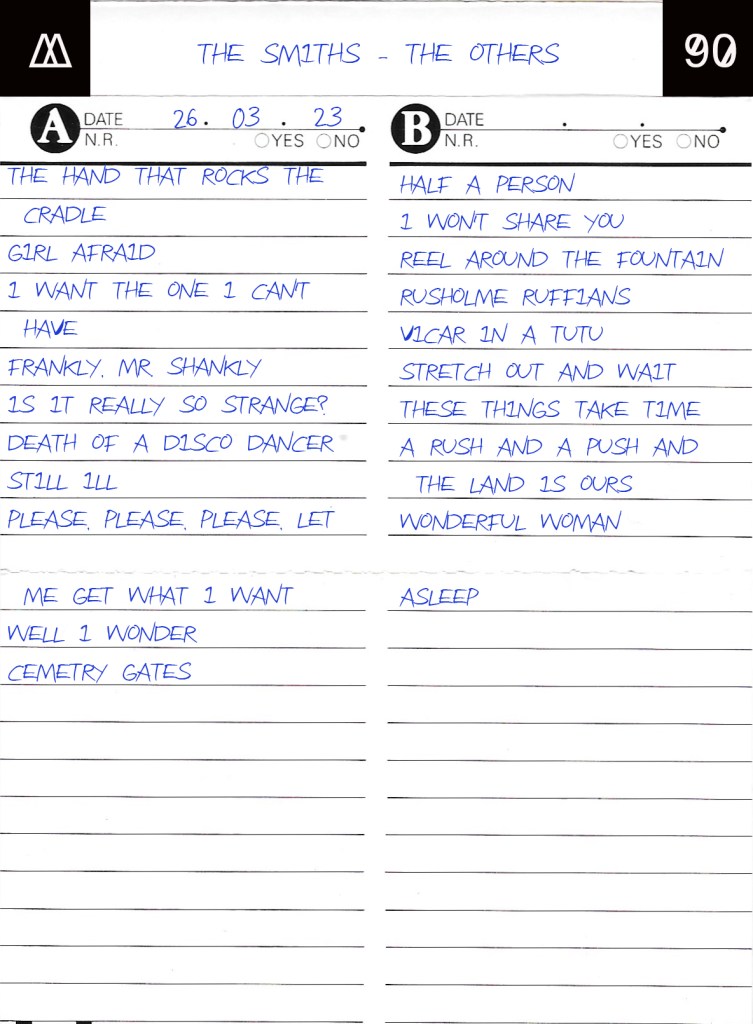 THE SMITHS - THE OTHERS
90
A DATE 26. 03. 23
N.R. YES NO
THE HAND THAT ROCKS THE
CRADLE
GIRL AFRAID
I WANT THE ONE I CAN'T
HAVE
FRANKLY, MR SHANKLY
IS IT REALLY SO STRANGE?
DEATH OF A DISCO DANCER
STILL ILL
PLEASE, PLEASE, PLEASE, LET
ME GET WHAT I WANT
WELL I WONDER
CEMETRY GATES
B DATE . .
N.R. YES NO
HALF A PERSON
I WON'T SHARE YOU
REEL AROUND THE FOUNTAIN
RUSHOLME RUFFIANS
VICAR IN A TUTU
STRETCH OUT AND WAIT
THESE THINGS TAKE TIME
A RUSH AND A PUSH AND
THE LAND IS OURS
WONDERFUL WOMAN
ASLEEP